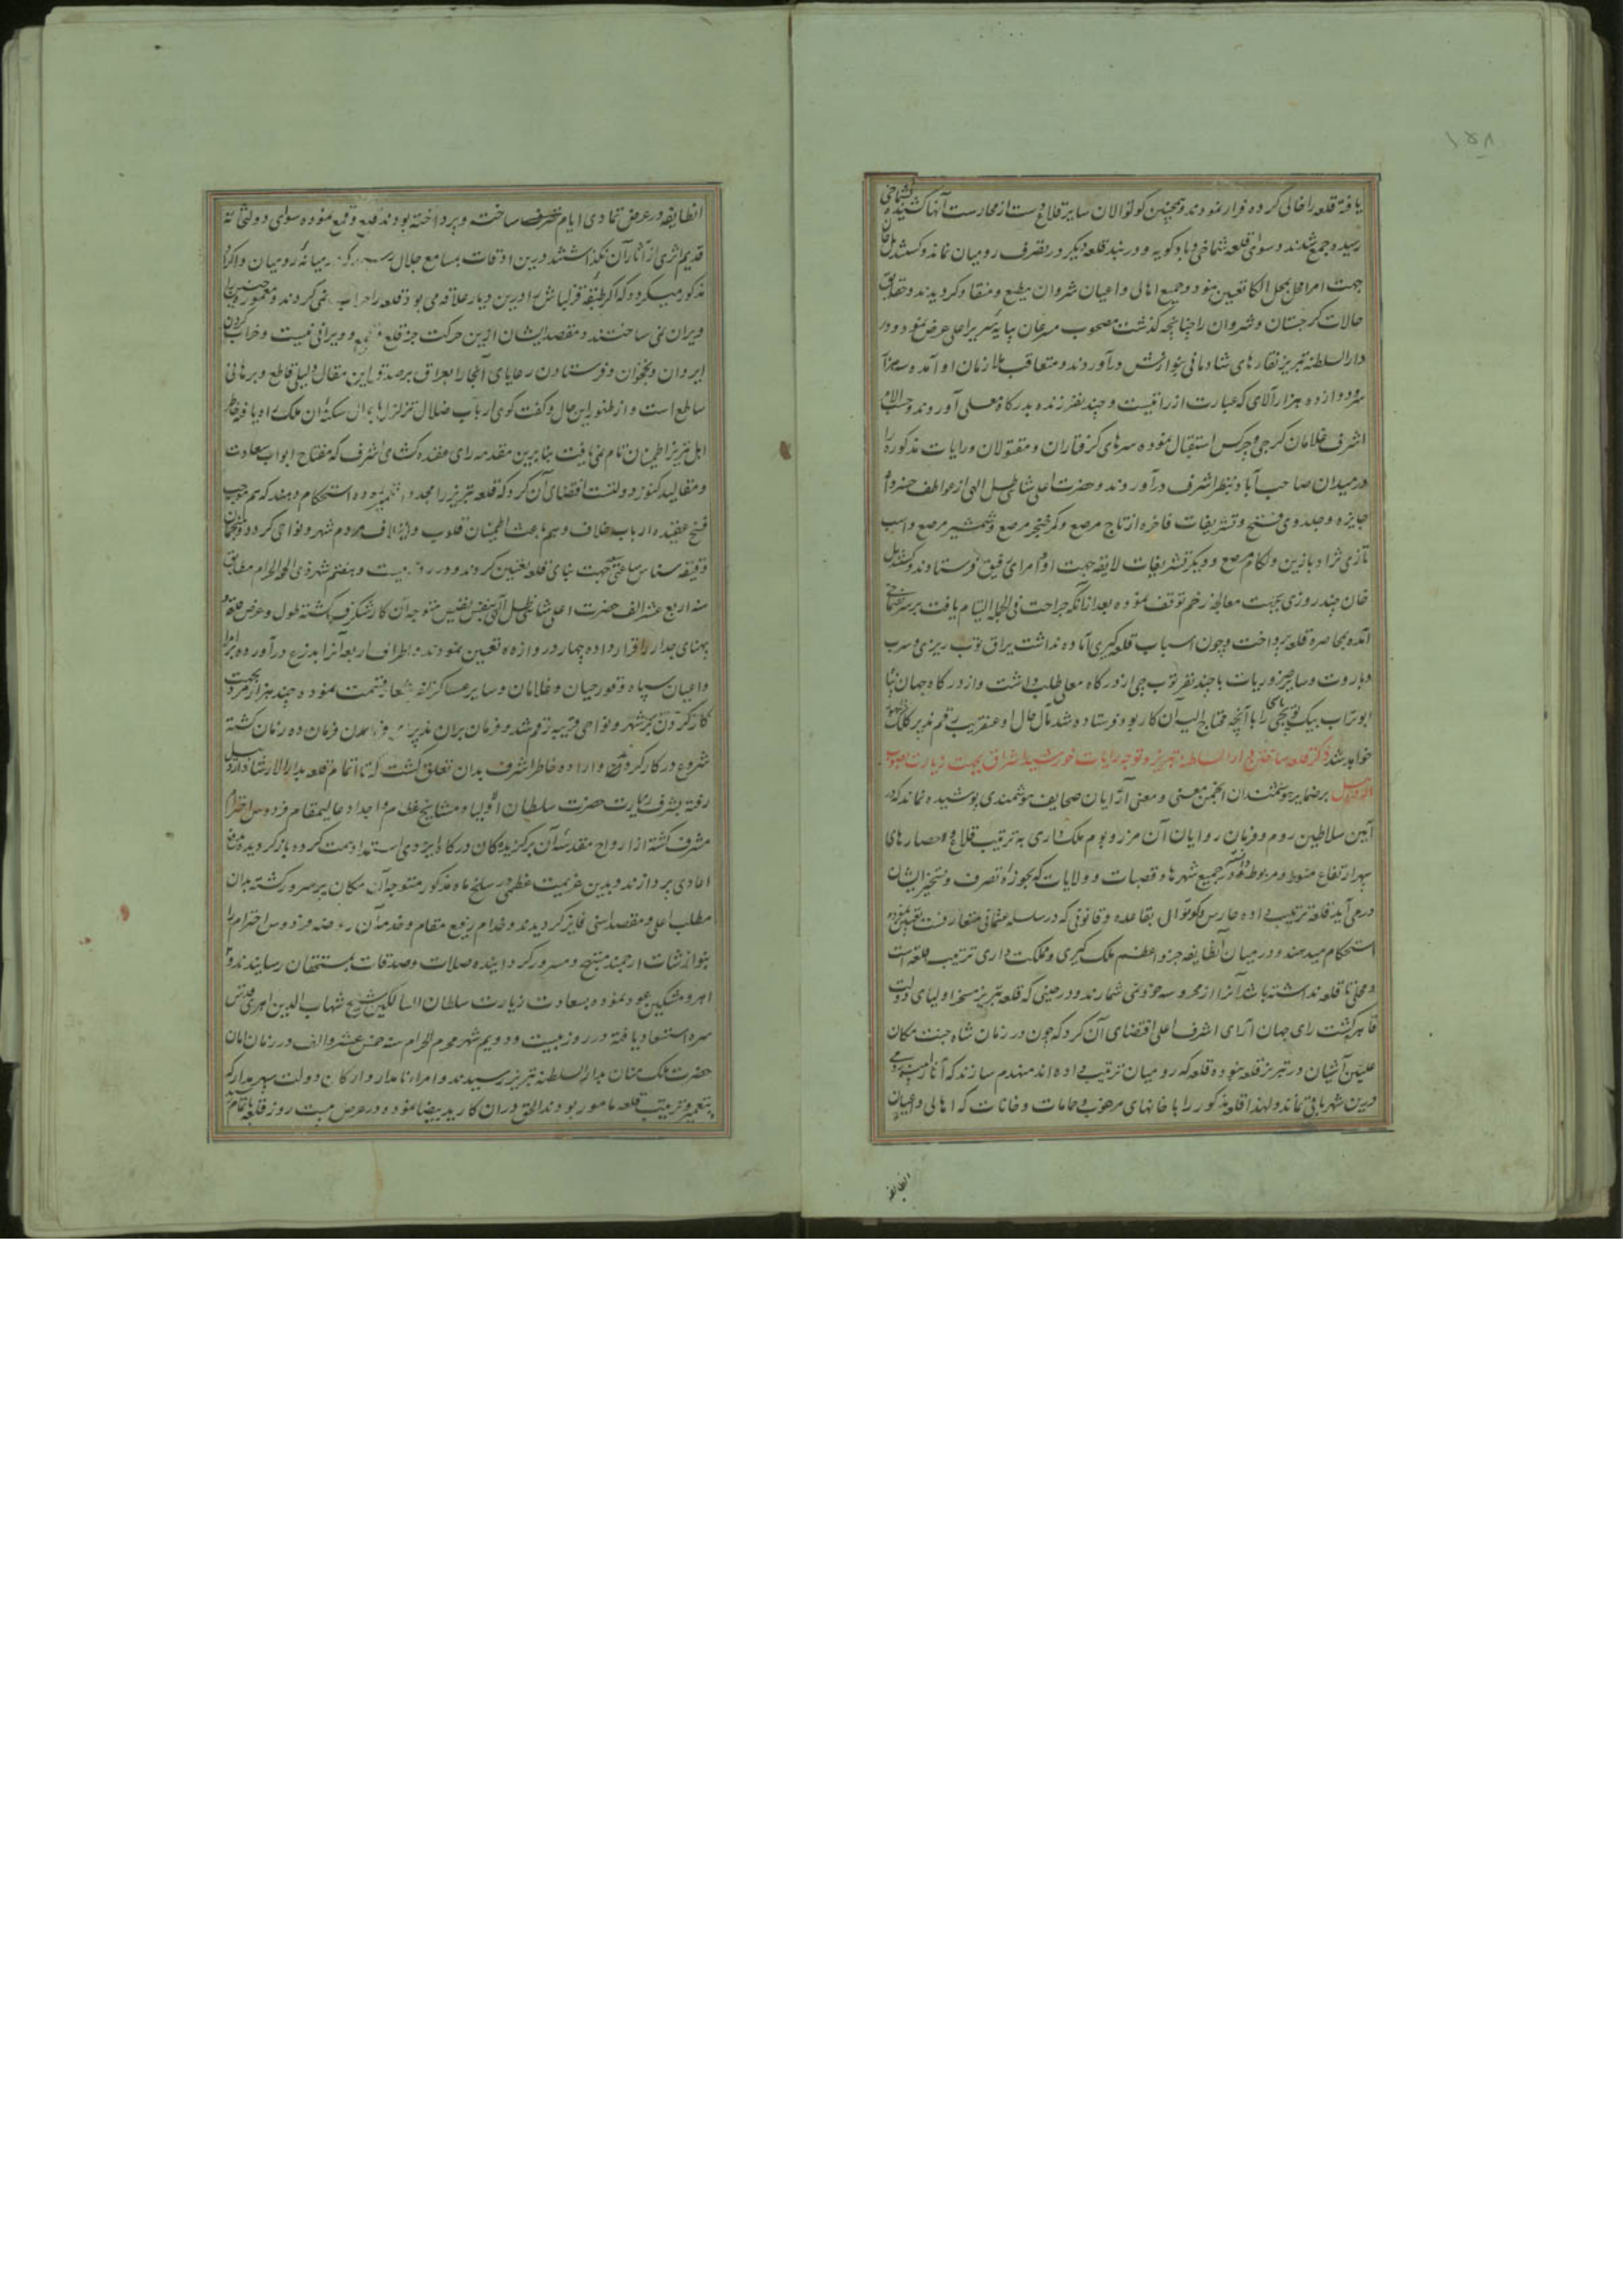 ۱۵۸
یافته قلعه را خالی کرده فرار نمودند و همچنین کوتوالان سایر قلاع دست از محارست آنها کشیده بشماخی
رسیده جمع شدند و سوای قلعه شماخی و بادکوبه و دربند قلعه دیگر در تصرف رومیان نماند و کستندیل خان
جهت امرا محل بمحل الکا تعیین نمود و جمیع اهالی و اعیان شروان مطیع و منقاد گردیدند و حقایق
حالات گرجستان و شروان را چنانچه گذشت مصحوب مسرعان بپایه سریر اعلی عرض نمود و در
دار السلطنه تبریز نقارهای شادمانی بنوازش درآوردند و متعاقب ملازمان او آمده سه هزار
سر و دوازده هزار آلای که عبارت از رایتست و چند نفر زنده بدرگاه معلی آوردند و حسب الامر
اشرف غلامان گرجی و چرکس استقبال نموده سرهای گرفتاران و مقتولان و رایات مذکوره را
در میدان صاحب آباد بنظر اشرف درآوردند و حضرت اعلی شاهی ظل الهی از عواطف خسروانه
جایزه و جلدوی فتح و تشریفات فاخره از تاج مرصع و کمر خنجر مرصع و شمشیر مرصع و اسب
تازی نژاد با زین و لگام مرصع و دیگر تشریفات لایقه جهت او و امرای رفیق فرستادند و کستندیل
خان چند روزی بجهت معالجه زخم توقف نموده بعد از آنکه جراحت فی الجمله التیام یافت بر سر شماخی
آمده بمحاصره قلعه پرداخت و چون اسباب قلعه گیری آماده نداشت یراق توپ ریزی و سرب
و باروت و سایر ضروریات با چند نفر توپچی از درگاه معلی طلب داشت و از درگاه جهان پناه
ابو تراب بیک توپچی باشی را با آنچه محتاج الیه آن کار بود فرستاده شد مآل حال او عنقریب رقم پذیر کلک
خواهد شد ذکر قلعه ساختن در دار السلطنه تبریز و توجه رایات خورشید اشراق بجهت زیارت بصوب
اردبیل بر ضمایر هوشمندان انجمن معنی و معنی آرایان صحایف هوشمندی پوشیده نماند که در
آیین سلاطین روم و فرمان روایان آن مرز و بوم ملک داری به ترتیب قلاع و حصارهای
سپهر ارتفاع منوط و مربوط دانسته در جمیع شهرها و قصبات و ولایات که بحوزه تصرف و تسخیر ایشان
در می آید قلعه ترتیب داده حارس و کوتوال بقاعده و قانونی که در سلسله عثمانی متعارفست تعیین نموده
استحکام میدهند و در میان آن طایفه جزو اعظم ملک گیری و مملکت داری ترتیب قلعه است
و محلی تا قلعه نداشته باشد آنرا از محروسه خود نمی شمارند و در حینی که قلعه تبریز مسخر اولیای دولت
قاهره گشت رای جهان آرای اشرف اعلی اقتضای آن کرد که چون در زمان شاه جنت مکان
علیین آشیان در تبریز قلعه نبوده قلعه که رومیان ترتیب داده اند منهدم سازند که آثار رومیه
درین شهر باقی نماند و لهذا قلعه مذکور را با خانهای مرغوب و حمامات و خانات که اهالی و اعیان
انطایفه
انطایفه در عرض تمادی ایام تصرف ساخته و پرداخته بودند قلع و قمع نموده سوای دولتخانه
قدیم اثری از آثار آن نگذاشتند درین اوقات بمسامع جلال رسید که رومیان و اکراد
مذکور میگردد که اگر طبقه قزلباش را درین دیار علاقه می بود قلعه را خراب نمی کردند و معموره چنین را
ویران نمی ساختند و مقصد ایشان ازین حرکت جز قلع و قمع و ویرانی نیست و خراب کردن
ایروان و نخجوان و فرستادن رعایای آنجا را بعراق بر صدق این مقال دلیلی قاطع و برهانی
ساطع است و از ظهور این حال و گفت و گوی ارباب ضلال تزلزل باحوال سکنه آن ملک راه یافته خاطر
اهل تبریز اطمینان تمام نمی یافت بنابرین مقدمه رای عقده گشای اشرف که مفتاح ابواب سعادت
و مقالید کنوز دولتست اقتضای آن کرد که قلعه تبریز را مجددا تعمیر نموده استحکام دهند که هم موجب
فسخ عقیده ارباب خلاف و هم باعث اطمینان قلوب و ایتلاف مردم شهر و نواحی گردد و منجمان
دقیقه شناس ساعتی جهت بنای قلعه تعیین کردند و در روز بیست و هفتم شهر ذی الحجة الحرام مطابق
سنه اربع عشر الف حضرت اعلی شاهی ظل الهی بنفس نفیس متوجه آن کار شگرف گشته طول و عرض قلعه و
پهنای جدار را قرار داده چهار دروازه تعیین نمودند و اطراف اربعه آنرا بذرع درآورده بر امرا
و اعیان سپاه و قورچیان و غلامان و سایر عساکر ظفر شعار قسمت نموده چند هزار مرد بجهت
کار کردن بر شهر و نواحی قریبه رقم شد و فرمان بران فرمان ده زمان گشته
شروع در کار کردند و اراده خاطر اشرف بدان تعلق گشت که تا اتمام قلعه بدار الارشاد اردبیل
رفته بشرف زیارت حضرت سلطان اولیا و مشایخ عظام و اجداد عالیمقام فردوس احترام
مشرف گشته از ارواح مقدسه آن برگزیدگان درگاه ایزدی استمداد همت کرده باز گردیده بدفع
اعادی پردازند و بدین عزیمت عظمی در سلخ ماه مذکور متوجه آن مکان پر سرور گشته بدان
مطلب اعلی و مقصد اسنی فایز گردیدند و خدام رفیع مقام و خدمه آن روضه فردوس احترام را
بنوازشات ارجمند مبتهج و مسرور گردانیده صلات و صدقات بمستحقان رسانیدند و از
اهر و مشکین عود نموده بسعادت زیارت سلطان السالکین شیخ شهاب الدین اهری قدس
سره استسعاد یافته در روز بیست و دویم شهر محرم الحرام سنه خمس عشر و الف در زمان امان
حضرت ملک منان بدار السلطنه تبریز رسیدند و امراء نامدار و ارکان دولت سپهر مدار که
بتعمیر و ترتیب قلعه مامور بودند الحق در آن کار ید بیضا نموده در عرض بیست روز قلعه باتمام رسید